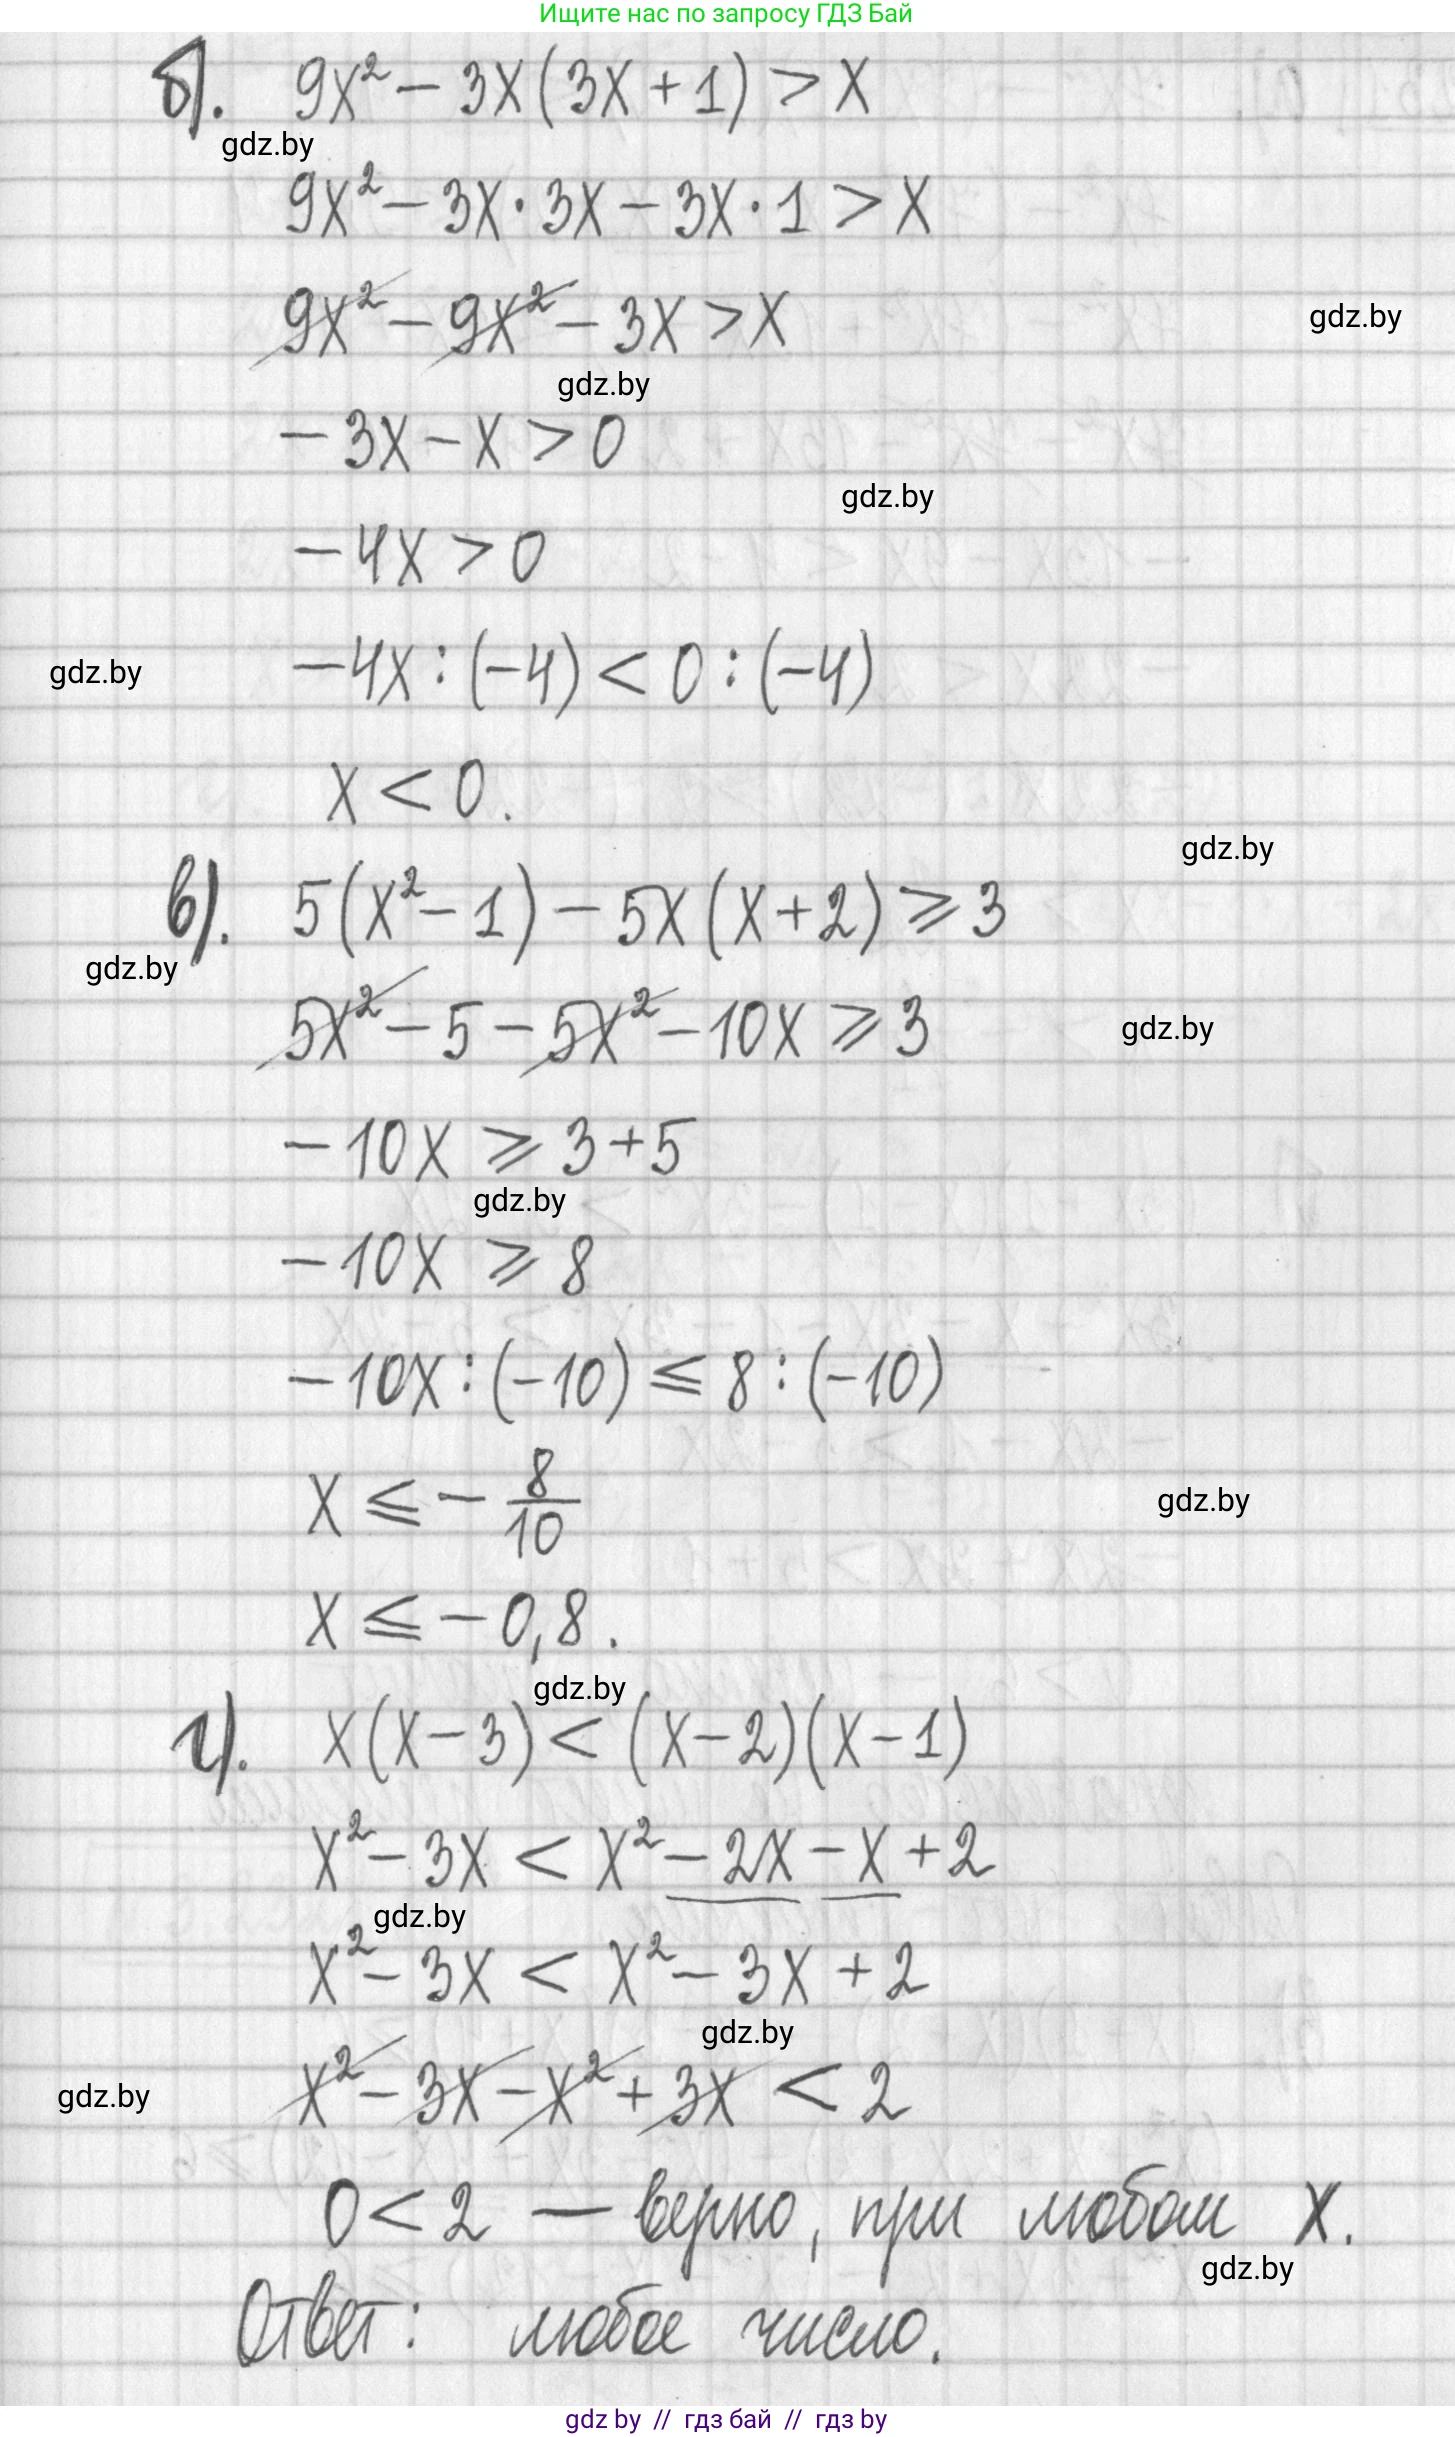 Ищите нас по запросу ГДЗ Бай
б). 9x² - 3x(3x + 1) > x
gdz.by
9x² - 3x · 3x - 3x · 1 > x
9x² - 9x² - 3x > x
gdz.by
gdz.by
-3x - x > 0
gdz.by
-4x > 0
-4x : (-4) < 0 : (-4)
gdz.by
x < 0.
gdz.by
в). 5(x² - 1) - 5x(x + 2) ⩾ 3
gdz.by
5x² - 5 - 5x² - 10x ⩾ 3
gdz.by
-10x ⩾ 3 + 5
gdz.by
-10x ⩾ 8
-10x : (-10) ⩽ 8 : (-10)
x ⩽ - 8/10
gdz.by
x ⩽ -0,8.
gdz.by
г). x(x - 3) < (x - 2)(x - 1)
x² - 3x < x² - 2x - x + 2
gdz.by
x² - 3x < x² - 3x + 2
gdz.by
x² - 3x - x² + 3x < 2
gdz.by
0 < 2 — верно, при любом x.
gdz.by
Ответ: любое число.
gdz by // гдз бай // гдз by